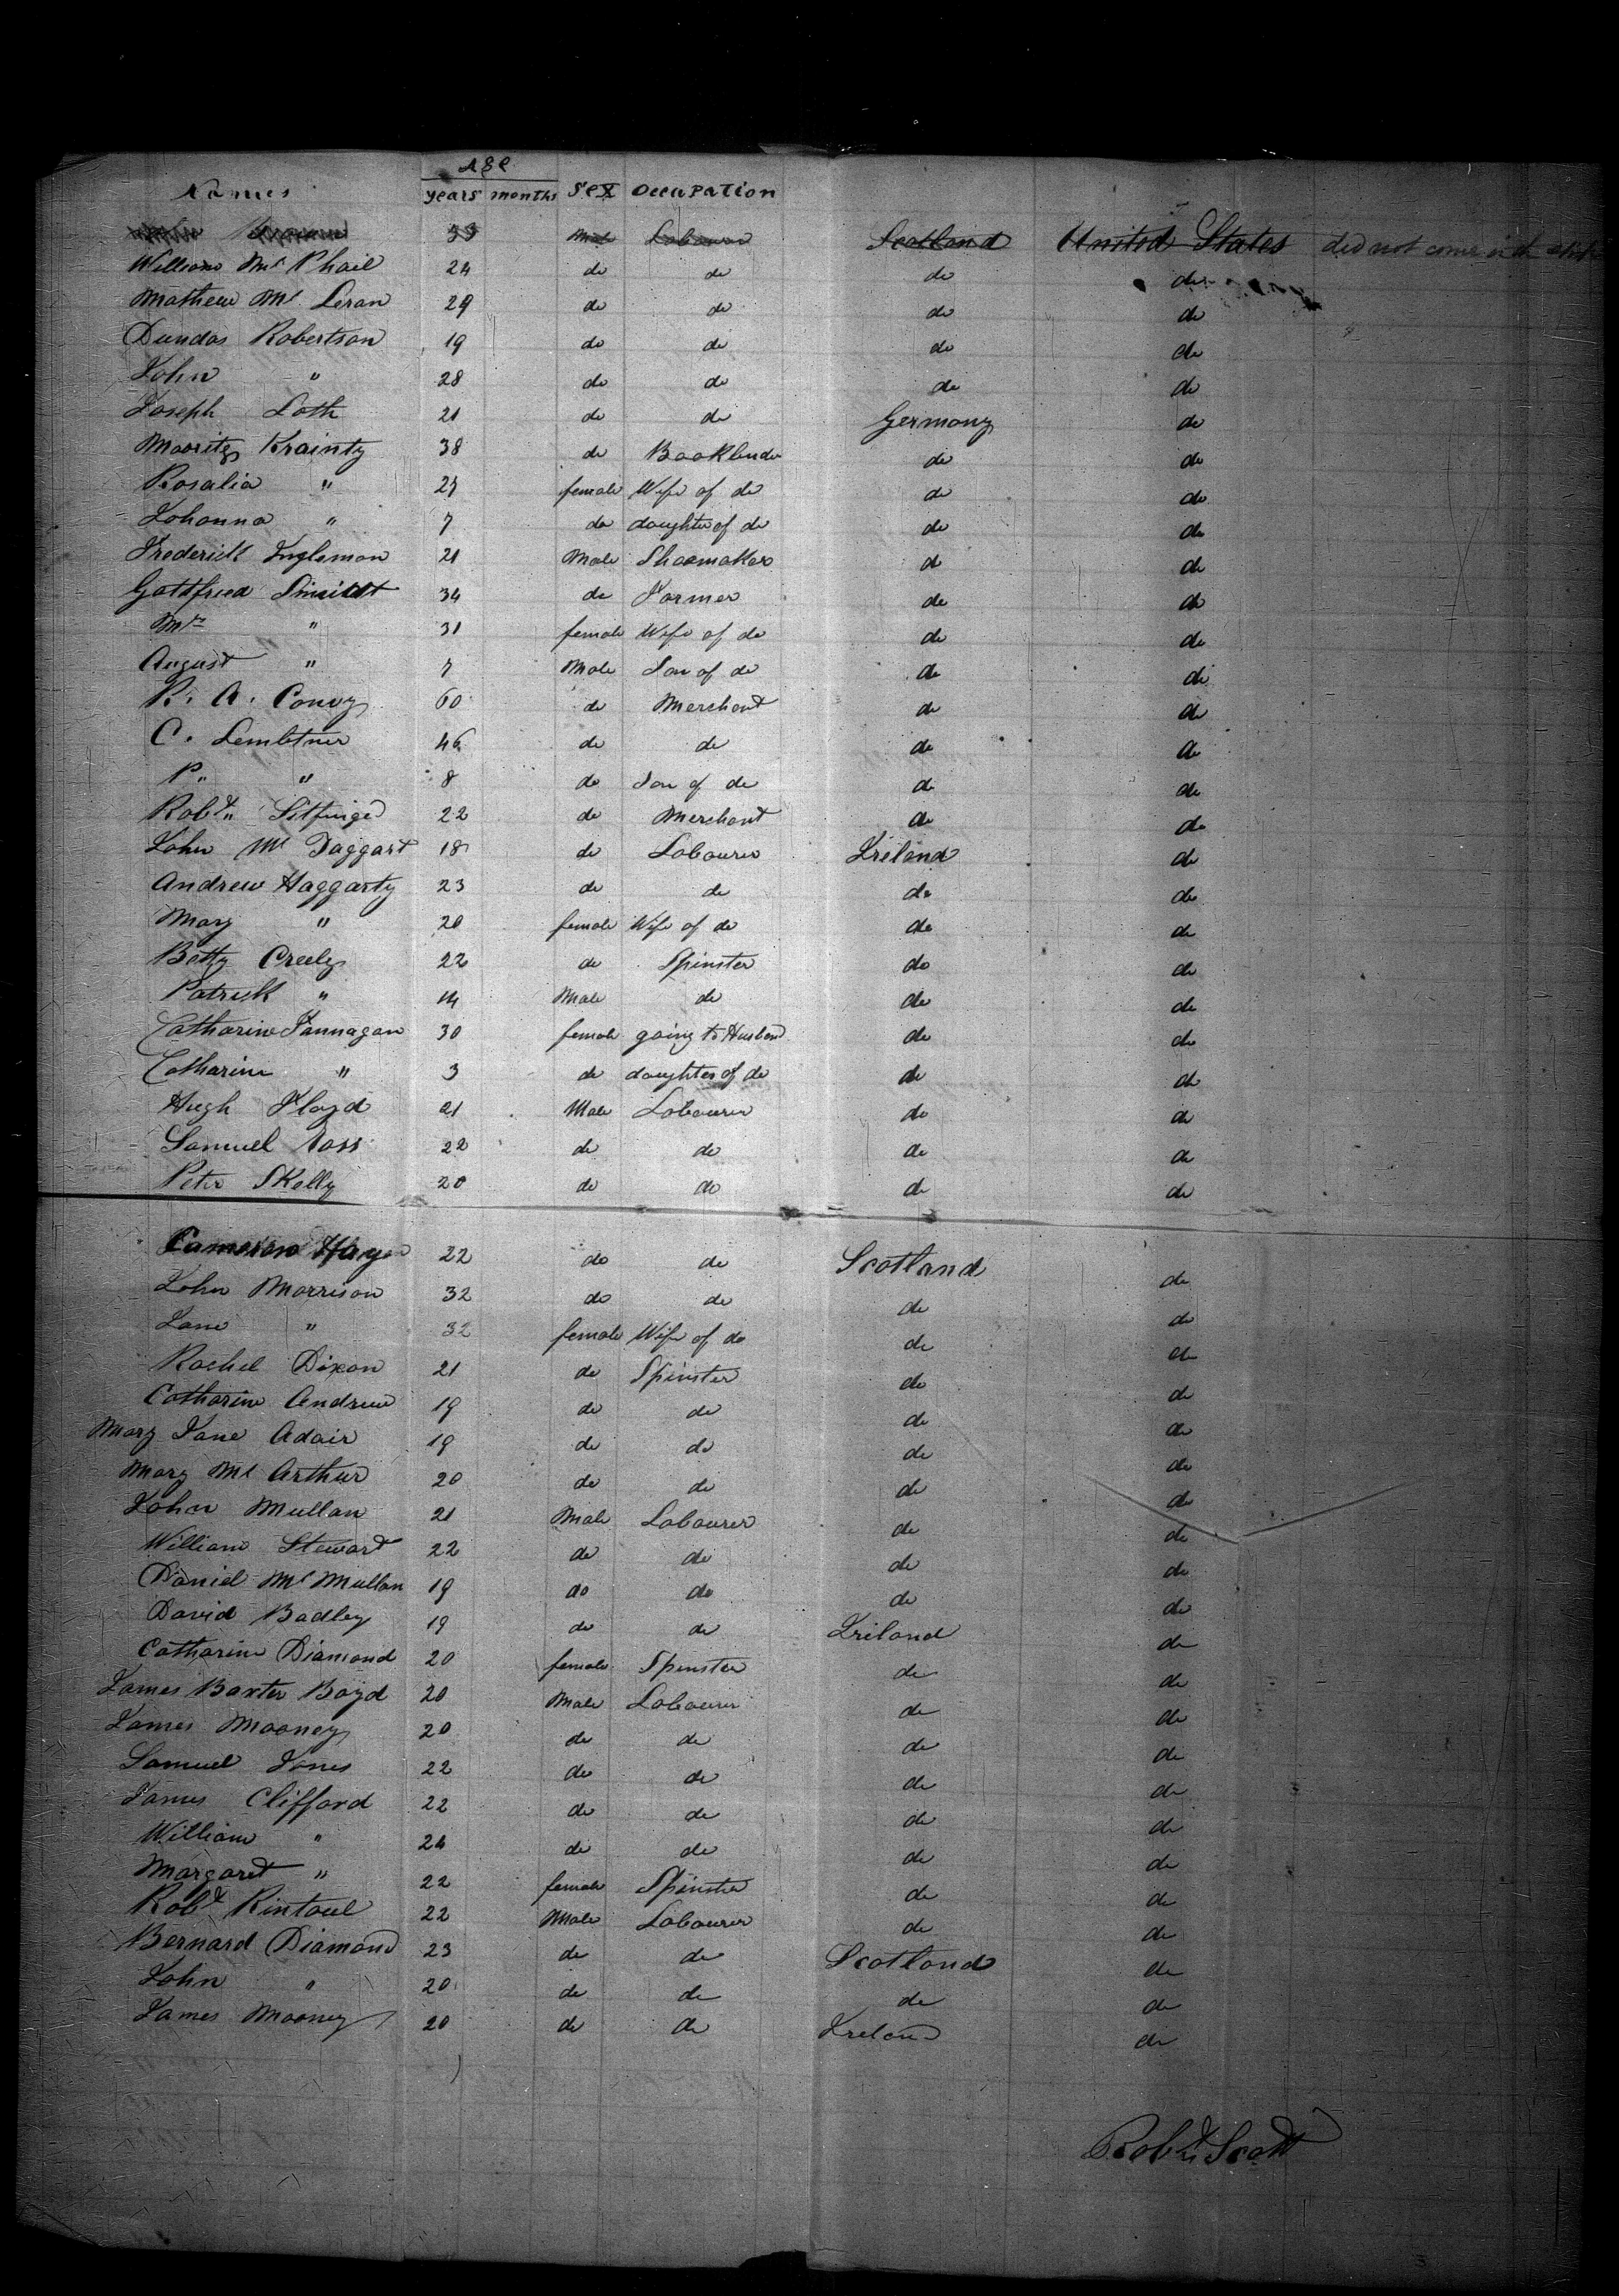 Age
Names years months Sex Occupation
33 Male Labourer Scotland United States did not come in the ship
William Mc Phail 24 do do do do
Mathew Mc Leran 29 do do do do
Dundas Robertson 19 do do do do
John " 28 do do do do
Joseph Loth 21 do do Germony do
Mooritz Krainty 38 do Bookbinder do do
Rosalia " 27 female Wife of do do do
Johanna " 7 do daughter of do do do
Frederick Ingleman 21 Male Shoemaker do do
Gottfried 34 do Farmer do do
Mrs " 31 female Wife of do do do
August " 7 Male Son of do do do
R. A. 60 do Merchant do do
C. 46 do do do do
P. " 8 do Son of do do do
Robt. 22 do Merchant do do
John Mc Taggart 18 do Labourer Ireland do
Andrew Haggarty 23 do do do do
Mary " 20 female Wife of do do do
Betty Creely 22 do Spinster do do
Patrick " 14 Male do do do
Catharine Fannagan 30 female going to Husband do do
Catharine " 3 do daughter of do do do
Hugh Floyd 21 Male Labourer do do
Samuel 22 do do do do
Peter Skelly 20 do do do do
Cameron Hay 22 do do Scotland do
John Morrison 32 do do do do
Jane " 32 female Wife of do do do
Rachel Dixon 21 do Spinster do do
Catharine Andrew 19 do do do do
Mary Jane Adair 19 do do do do
Mary Mc Arthur 20 do do do do
John Mullan 21 Male Labourer do do
William Stewart 22 do do do do
Daniel Mc Mullan 19 do do do do
David Badley 19 do do Ireland do
Catharine Diamond 20 female Spinster do do
James Baxter Boyd 20 Male Labourer do do
James Mooney 20 do do do do
Samuel Jones 22 do do do do
James Clifford 22 do do do do
William " 24 do do do do
Margaret " 22 female Spinster do do
Robt Rintoul 22 Male Labourer do do
Bernard Diamond 23 do do Scotland do
John " 20 do do do do
James Mooney 20 do do Ireland do
Robt Scott